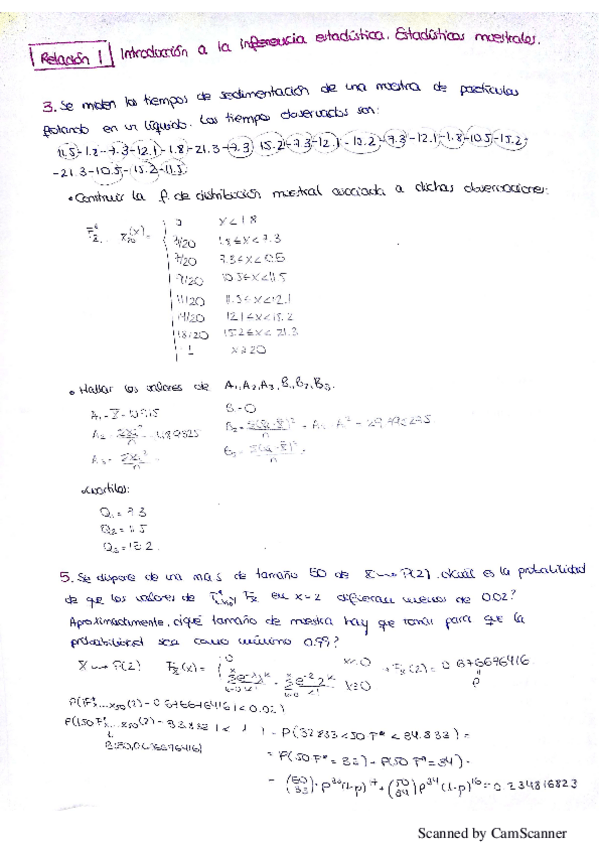 Relación 1 Introducción a la inferencia estadística. Estadísticos muestrales.
3. Se miden los tiempos de sedimentación de una muestra de partículas
flotando en un líquido. Los tiempos observados son:
11.5-1.8-7.3-12.1-1.8-21.3-7.3 15.2-7.3-12.1-15.2-7.3-12.1-1.8-10.5-15.2-
-21.3-10.5-15.2-11.5
• Construir la f. de distribución muestral asociada a dichas observaciones:
0 x<1.8
3/20 1.8≤x<7.3
7/20
9/20 10.5≤x<11.5
11/20 11.5≤x<12.1
14/20 12.1≤x<15.2
18/20 15.2≤x<21.3
1 x≥20
• Hallar los valores de A₁,A₂,A₃,B₁,B₂,B₃.
B₁=0
Cuartiles:
Q₁=7.3
Q₂=11.5
Q₃=15.2
5. Se dispone de una m.a.s de tamaño 50 de X⟿P(2). ¿Cuál es la probabilidad
de que los valores de y Fx en x=2 difieran menos de 0.02?
Aproximadamente, ¿qué tamaño de muestra hay que tomar para que la
probabilidad sea como mínimo 0.99?
X⟿P(2)
x<0
x≥0
Fx(2)=0.676676416
p
= P(32.833<50F*<34.833) =
= P(50F*=33)+P(50F*=34)=
B(50,0.676676416)
= (50 33) p³³(1-p)¹⁷+(50 34)p³⁴(1-p)¹⁶=0.234816823
Scanned by CamScanner